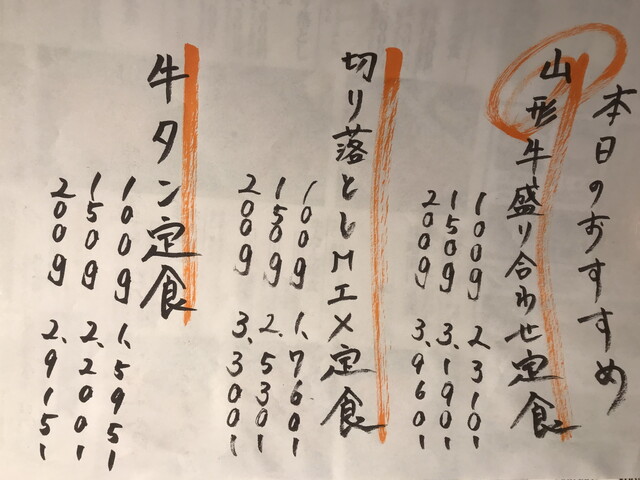 本日のおすすめ
山形牛盛り合わせ定食
100g 2,310-
150g 3,190-
200g 3,960-
切り落としMIX定食
100g 1,760-
150g 2,530-
200g 3,300-
牛タン定食
100g 1,595-
150g 2,200-
200g 2,915-